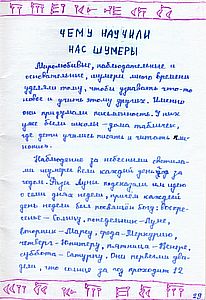 ЧЕМУ НАУЧИЛИ
НАС ШУМЕРЫ
Миролюбивые, наблюдательные и
основательные, шумеры много времени
уделяли тому, чтобы узнавать что-то
новое и учить этому других. Именно
они придумали письменность. У них
уже были школы - дома табличек,
где дети учились писать и читать
Наблюдение за небесными светила-
ми шумеры вели каждый день за
годом. Фазы Луны подсказали им идею
о семи днях недели, причём каждый
день недели был посвящён богу: воскре-
сенье - Солнцу, понедельник - Луне,
вторник - Марсу, среда - Меркурию,
четверг - Юпитеру, пятница - Венере,
суббота - Сатурну. Они первыми уви-
дели, что солнце за год проходит 12
29